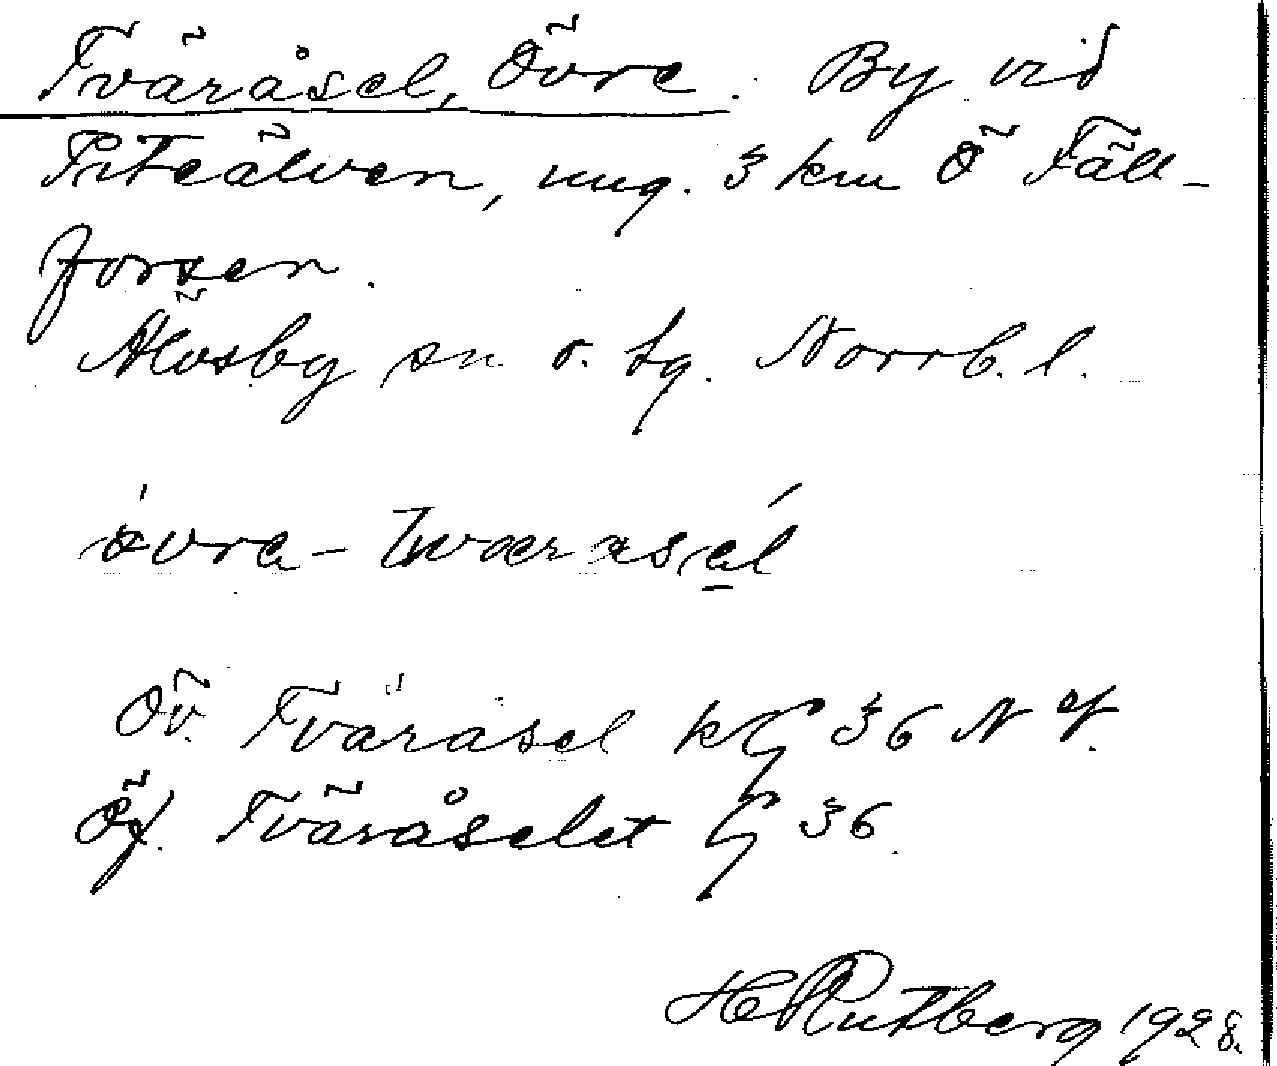 Tväråsel, Övre. By vid
Piteälven, ung. 3 km Ö Fäll-
forsen.
Älvsby sn o. tg. Norrb. l.
Öv. Tväråsel 36 N
Öf. Tväråselet 36
H Rutberg 1928.